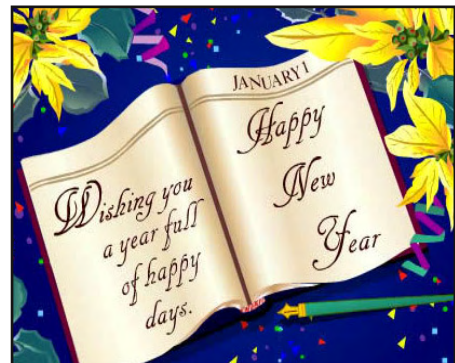 Wishing you
a year full
of happy
days.
JANUARY 1
Happy
New
Year